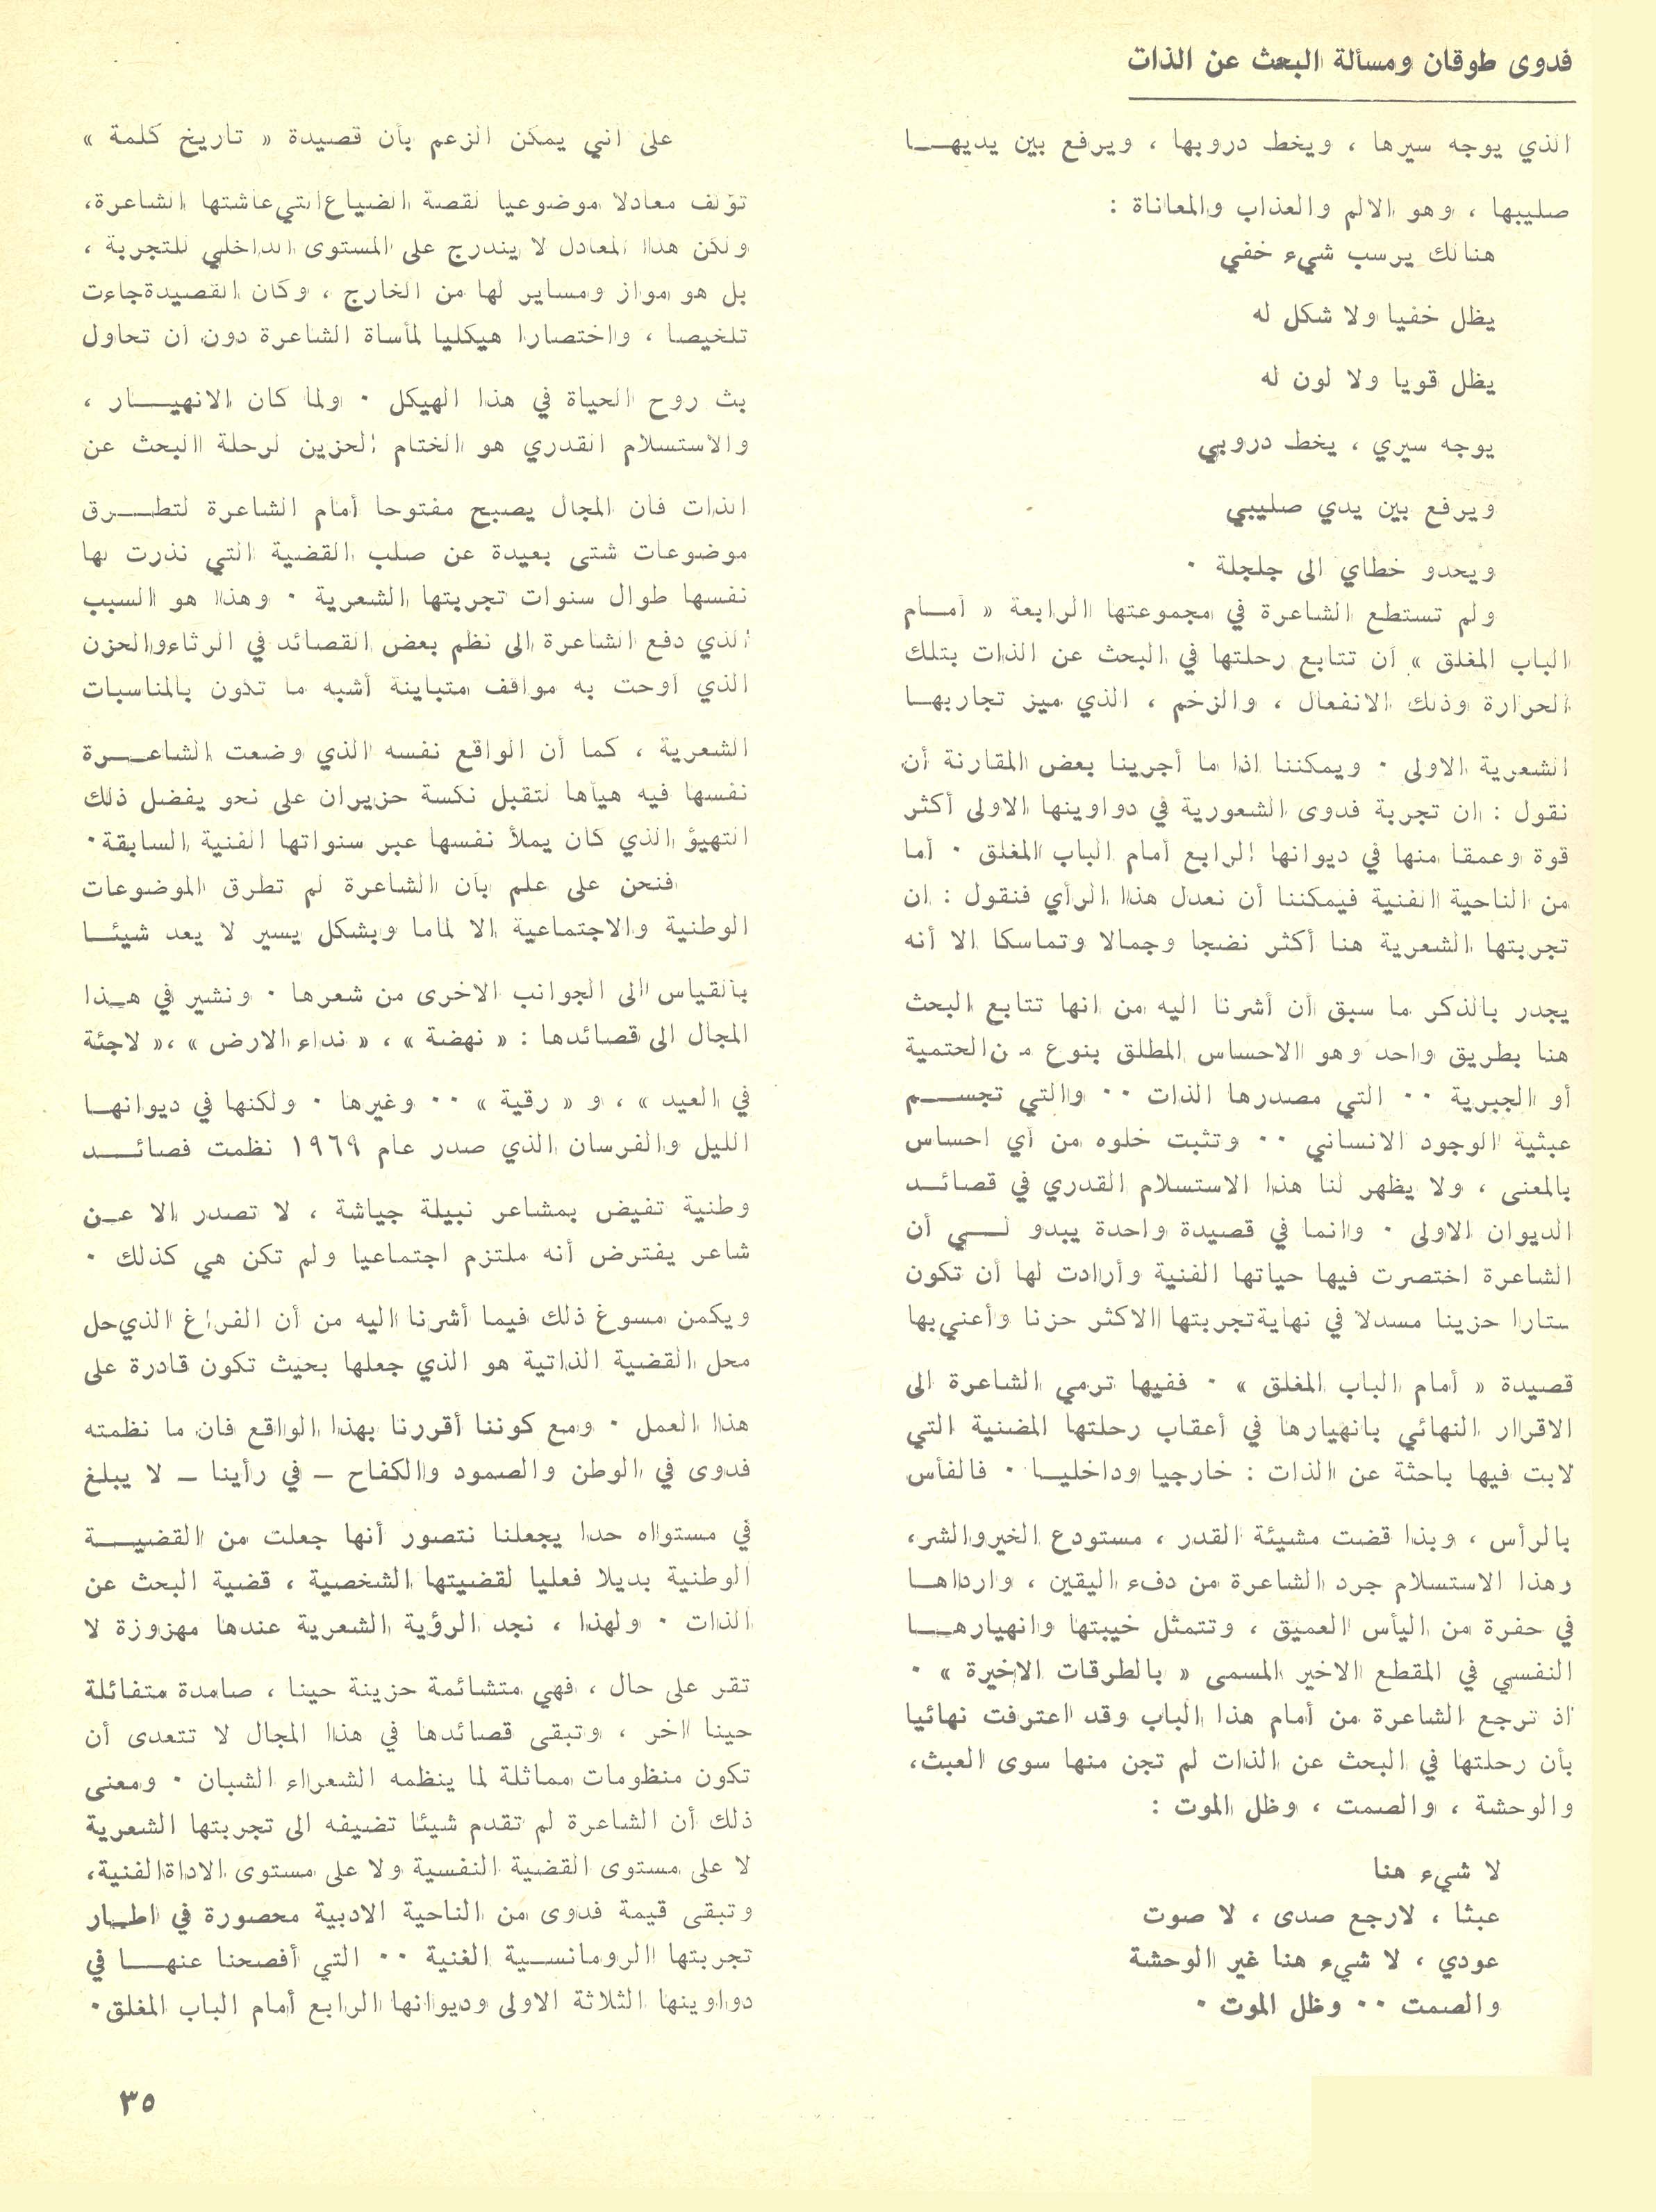 فدوى طوقان ومسألة البحث عن الذات
الذي يوجه سيرها ، ويخط دروبها ، ويرفع بين يديهـــا
صليبها ، وهو الالم والعذاب والمعاناة :
هنالك يرسب شيء خفي
يظل خفيا ولا شكل له
يظل قويا ولا لون له
يوجه سيري ، يخط دروبي
ويرفع بين يدي صليبي
ويحدو خطاي الى جلجلة ٠
ولم تستطع الشاعرة في مجموعتها الرابعة « أمـام
الباب المغلق » أن تتابع رحلتها في البحث عن الذات بتلك
الحرارة وذلك الانفعال ، والزخم ، الذي ميز تجاربهـا
الشعرية الاولى ٠ ويمكننا اذا ما أجرينا بعض المقارنة أن
نقول : ان تجربة فدوى الشعورية في دواوينها الاولى أكثر
قوة وعمقا منها في ديوانها الرابع أمام الباب المغلق ٠ أما
من الناحية الفنية فيمكننا أن نعدل هذا الرأي فنقول : ان
تجربتها الشعرية هنا أكثر نضجا وجمالا وتماسكا الا أنه
يجدر بالذكر ما سبق أن أشرنا اليه من انها تتابع البحث
هنا بطريق واحد وهو الاحساس المطلق بنوع من الحتمية
أو الجبرية ٠٠ التي مصدرها الذات ٠٠ والتي تجســم
عبثية الوجود الانساني ٠٠ وتثبت خلوه من أي احساس
بالمعنى ، ولا يظهر لنا هذا الاستسلام القدري في قصائـد
الديوان الاولى ٠ وانما في قصيدة واحدة يبدو لــي أن
الشاعرة اختصرت فيها حياتها الفنية وأرادت لها أن تكون
ستارا حزينا مسدلا في نهاية تجربتها الاكثر حزنا وأعني بها
قصيدة « أمام الباب المغلق » ٠ ففيها ترمي الشاعرة الى
الاقرار النهائي بانهيارها في أعقاب رحلتها المضنية التي
لابت فيها باحثة عن الذات : خارجيا وداخليـا ٠ فالفأس
بالرأس ، وبذا قضت مشيئة القدر ، مستودع الخير والشر،
رهذا الاستسلام جرد الشاعرة من دفء اليقين ، وارداهـا
في حفرة من اليأس العميق ، وتتمثل خيبتها وانهيارهــا
النفسي في المقطع الاخير المسمى « بالطرقات الاخيرة » ٠
اذ ترجع الشاعرة من أمام هذا الباب وقد اعترفت نهائيا
بأن رحلتها في البحث عن الذات لم تجن منها سوى العبث،
والوحشة ، والصمت ، وظل الموت :
لا شيء هنا
عبثا ، لارجع صدى ، لا صوت
عودي ، لا شيء هنا غير الوحشة
والصمت ٠٠ وظل الموت ٠
على اني يمكن الزعم بأن قصيدة « تاريخ كلمة »
تؤلف معادلا موضوعيا لقصة الضياع التي عاشتها الشاعرة،
ولكن هذا المعادل لا يندرج على المستوى الداخلي للتجربة ،
بل هو مواز ومساير لها من الخارج ، وكان القصيدة جاءت
تلخيصا ، واختصارا هيكليا لمأساة الشاعرة دون أن تحاول
بث روح الحياة في هذا الهيكل ٠ ولما كان الانهيــار ،
والاستسلام القدري هو الختام الحزين لرحلة البحث عن
الذات فان المجال يصبح مفتوحا أمام الشاعرة لتطـرق
موضوعات شتى بعيدة عن صلب القضية التي نذرت لها
نفسها طوال سنوات تجربتها الشعرية ٠ وهذا هو السبب
الذي دفع الشاعرة الى نظم بعض القصائد في الرثاء والحزن
الذي أوحت به مواقف متباينة أشبه ما تكون بالمناسبات
الشعرية ، كما أن الواقع نفسه الذي وضعت الشاعــرة
نفسها فيه هيأها لتقبل نكسة حزيران على نحو يفضل ذلك
التهيؤ الذي كان يملأ نفسها عبر سنواتها الفنية السابقة٠
فنحن على علم بأن الشاعرة لم تطرق الموضوعات
الوطنية والاجتماعية الا لماما وبشكل يسير لا يعد شيئـا
بالقياس الى الجوانب الاخرى من شعرها ٠ ونشير في هـذا
المجال الى قصائدها : « نهضة » ، « نداء الارض » ،« لاجئة
في العيد » ، و « رقية » ٠٠ وغيرها ٠ ولكنها في ديوانهـا
الليل والفرسان الذي صدر عام ١٩٦٩ نظمت قصائــد
وطنية تفيض بمشاعر نبيلة جياشة ، لا تصدر الا عـن
شاعر يفترض أنه ملتزم اجتماعيا ولم تكن هي كذلك ٠
ويكمن مسوغ ذلك فيما أشرنا اليه من أن الفراغ الذي حل
محل القضية الذاتية هو الذي جعلها بحيث تكون قادرة على
هذا العمل ٠ ومع كوننا أقررنا بهذا الواقع فان ما نظمته
فدوى في الوطن والصمود والكفاح ــ في رأينا ــ لا يبلغ
في مستواه حدا يجعلنا نتصور أنها جعلت من القضيــة
الوطنية بديلا فعليا لقضيتها الشخصية ، قضية البحث عن
الذات ٠ ولهذا ، نجد الرؤية الشعرية عندها مهزوزة لا
تقر على حال ، فهي متشائمة حزينة حينا ، صامدة متفائلة
حينا اخر ، وتبقى قصائدها في هذا المجال لا تتعدى أن
تكون منظومات مماثلة لما ينظمه الشعراء الشبان ٠ ومعنى
ذلك أن الشاعرة لم تقدم شيئا تضيفه الى تجربتها الشعرية
لا على مستوى القضية النفسية ولا على مستوى الاداة الفنية،
وتبقى قيمة فدوى من الناحية الادبية محصورة في اطـار
تجربتها الرومانسـية الغنية ٠٠ التي أفصحنا عنهــا في
دواوينها الثلاثة الاولى وديوانها الرابع أمام الباب المغلق٠
٣٥